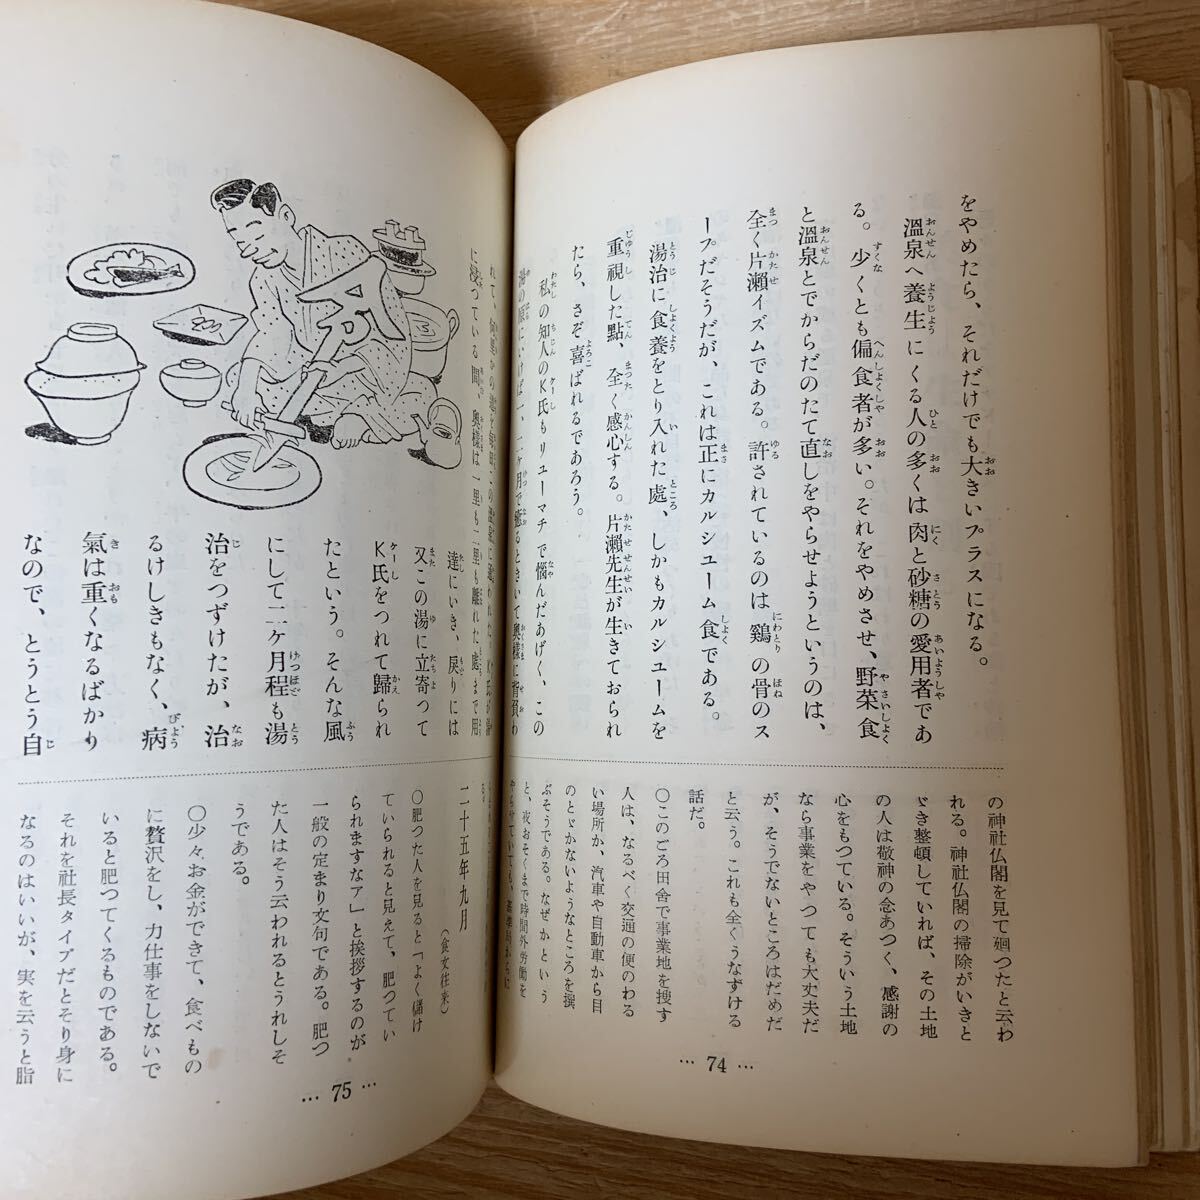 をやめたら、それだけでも大きいプラスになる。
溫泉へ養生にくる人の多くは肉と砂糖の愛用者であ
る。少くとも偏食者が多い。それをやめさせ、野菜食
と溫泉とでからだのたて直しをやらせようというのは、
全く片瀬イズムである。許されているのは鷄の骨のス
ープだそうだが、これは正にカルシユーム食である。
湯治に食養をとり入れた處、しかもカルシユームを
重視した點、全く感心する。片瀬先生が生きておられ
たら、さぞ喜ばれるであろう。
私の知人のK氏もリユーマチで悩んだあげく、この
湯の原にいけば一、二ケ月で癒るときいて奥様に背負わ
の神社仏閣を見て廻つたと云わ
れる。神社仏閣の掃除がいきと
ゞき整頓していれば、その土地
の人は敬神の念あつく、感謝の
心をもつている。そういう土地
なら事業をやつても大丈夫だ
が、そうでないところはだめだ
と云う。これも全くうなずける
話だ。
〇このごろ田舎で事業地を捜す
人は、なるべく交通の便のわる
い場所か、汽車や自動車から目
のとゞかないようなところを撰
ぶそうである。なぜかという
と、夜おそくまで時間外労働を
… 74 …
れて、
に浸つている間、奥様は一里も二里も離れた處まで用
達にいき、戻りには
又この湯に立寄つて
K氏をつれて歸られ
たという。そんな風
にして二ケ月程も湯
治をつずけたが、治
るけしきもなく、病
氣は重くなるばかり
なので、とうとう自
二十五年九月
(食文往来)
〇肥つた人を見ると「よく儲け
ていられると見えて、肥つてい
られますなア」と挨拶するのが
一般の定まり文句である。肥つ
た人はそう云われるとうれしそ
うである。
〇少々お金ができて、食べもの
に贅沢をし、力仕事をしないで
いると肥つてくるものである。
それを社長タイプだとそり身に
なるのはいいが、実を云うと脂
… 75 …